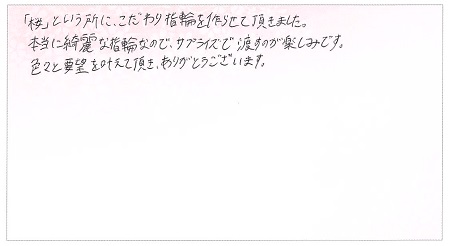 「桜」という所に、こだわり指輪を作らせて頂きました。
本当に綺麗な指輪なので、サプライズで渡すのが楽しみです。
色々と要望を叶えて頂き、ありがとうございます。